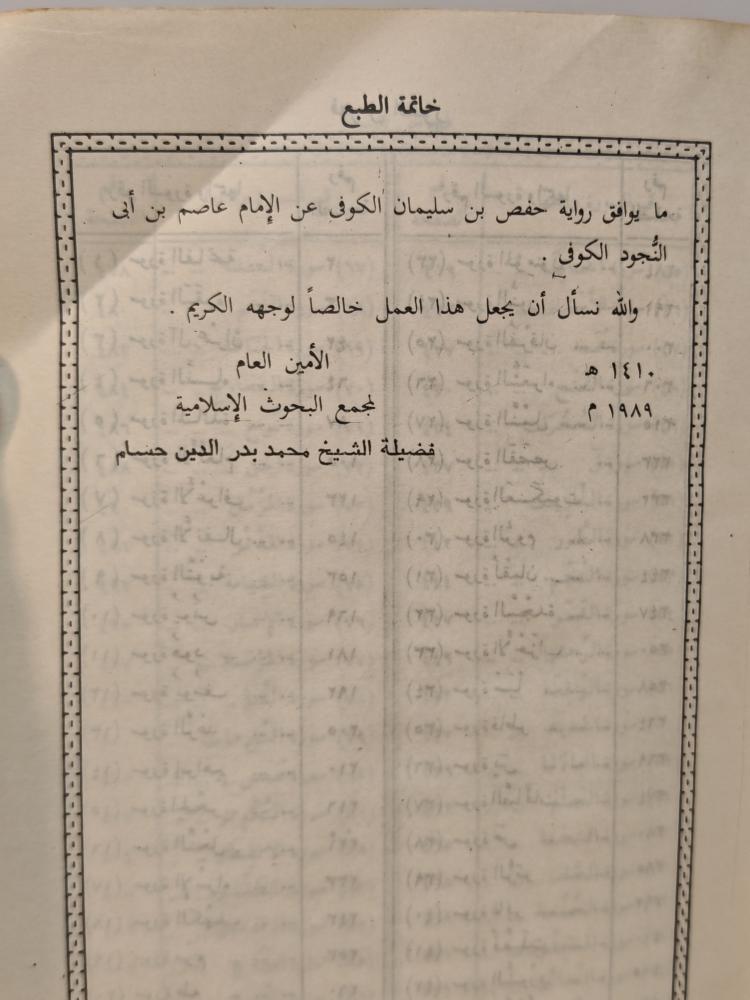 خاتمة الطبع
ما يوافق رواية حفص بن سليمان الكوفى عن الإمام عاصم بن أبى
النُّجود الكوفى .
والله نسأل أن يجعل هذا العمل خالصاً لوجهه الكريم .
١٤١٠ هـ
الأمين العام
١٩٨٩ م
لمجمع البحوث الإسلامية
فضيلة الشيخ محمد بدر الدين حسام